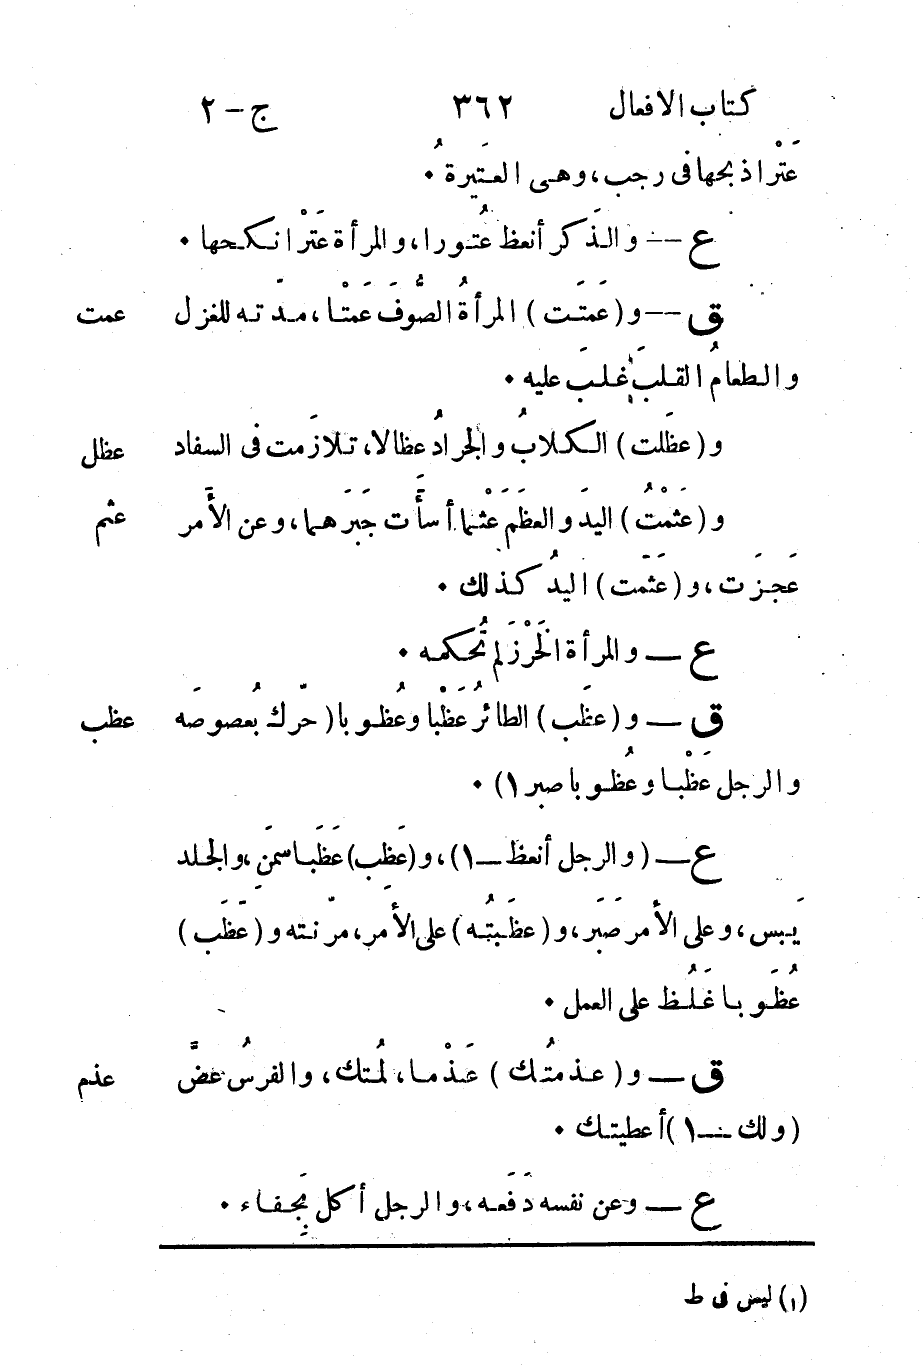 كتاب الافعال ٣٦٢ ج - ٢
عَتْرا ذبحها فى رجب، وهى العَتيرةُ ٠
ع -- والذَكر أنعظ عُتورا، والمرأة عَتْرا نكحها ٠
ق -- و (عَمَتَت) المرأةُ الصُّوفَ عَمْتا، مدّته للغزل عمت
والطعامُ القلبَ غلبَ عليه ٠
و (عظَلت) الكلابُ والجرادُ عظالا، تلازَمت فى السفاد عظل
و (عثَمْتُ) اليدَ والعظمَ عَثْما أسأَت جَبَرهما، وعن الأَمر عثم
عَجزَت، و (عَثَمت) اليدُ كذلك ٠
ع — والمرأة الخَرْزَ لم تُحكمه ٠
ق — و (عظَب) الطائرُ عَظْبا وعُظوبا (حرّك بعصوصَه عظب
والرجل عَظْبا وعُظوبا صبر ١) ٠
ع — (والرجل أنعظ — ١)، و (عَظِب) عَظَبا سمَن، والجلد
يَبس، وعلى الأمر صَبَر، و (عظَبتُه) على الأمر، مرّنته و (عَظَب)
عُظَوبا غَلُظ على العمل ٠
ق — و (عذمتُك) عَذْما، لمُتك، والفرسُ عضَّ عذم
(ولك — ١) أعطيتك ٠
ع — وعن نفسه دَفَعه، والرجل أكل بجفاء ٠
(١) ليس فى ط